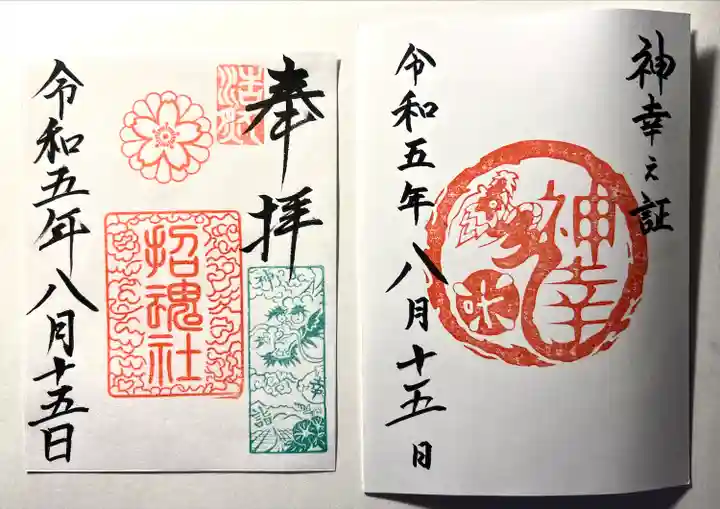 奉拝
招魂社
令和五年八月十五日
神幸之証
神幸
令和五年八月十五日